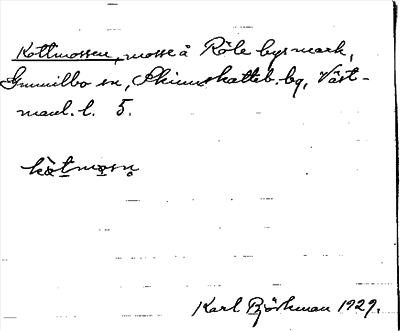 Kottmossen, mosse å Röle bys mark,
Gunnilbo sn, Skinnskatteb. bg, Väst-
manl. l. 5.
kòtmosn̥
Karl Björkman 1929.